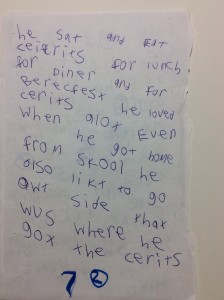 he sat and eat
ceirits for lunch
for Diner and for
berecfest he loved
cerits
when alot Even
he got home
from skool he
also likt to go
awt side
wus where that
gox the cerits he
7 2